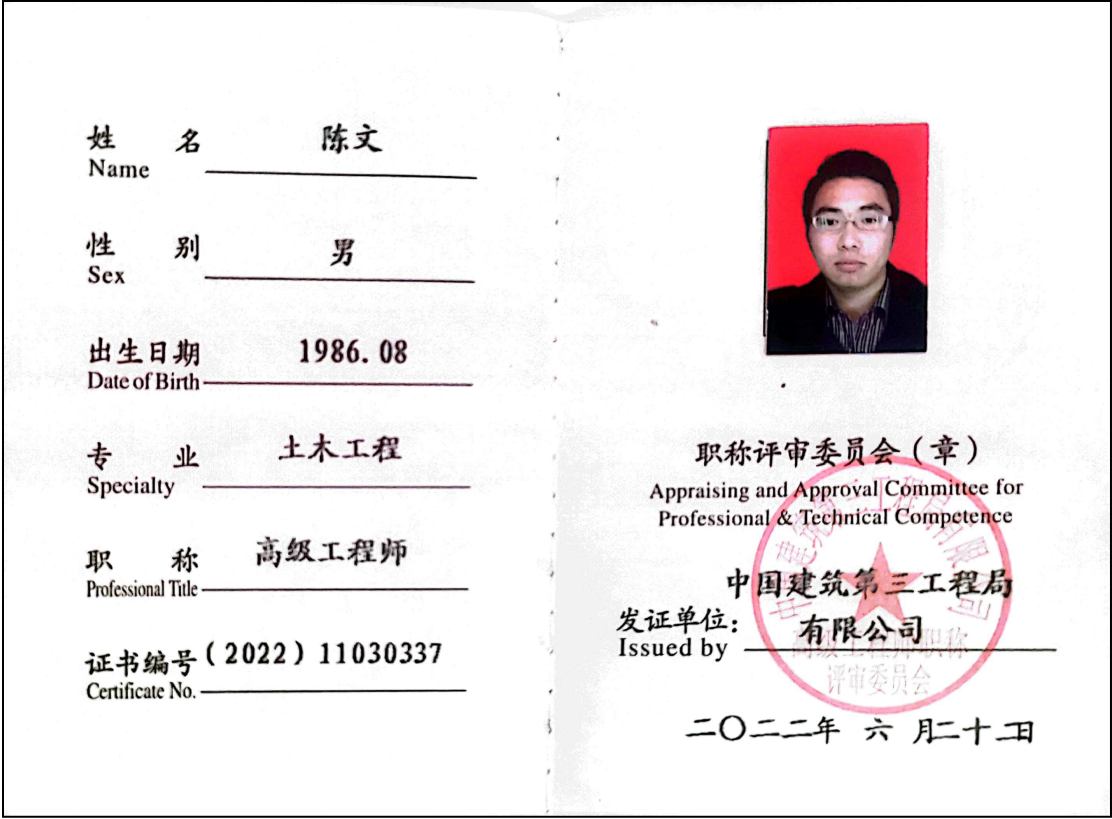 姓 名 陈文
Name
性 别 男
Sex
出生日期 1986.08
Date of Birth
专 业 土木工程
Specialty
职 称 高级工程师
Professional Title
证书编号 (2022) 11030337
Certificate No.
职称评审委员会(章)
Appraising and Approval Committee for
Professional & Technical Competence
中国建筑第三工程局
发证单位: 有限公司
Issued by
中国建筑第三工程局有限公司
高级工程师职称
评审委员会
二〇二二年 六 月二十二日